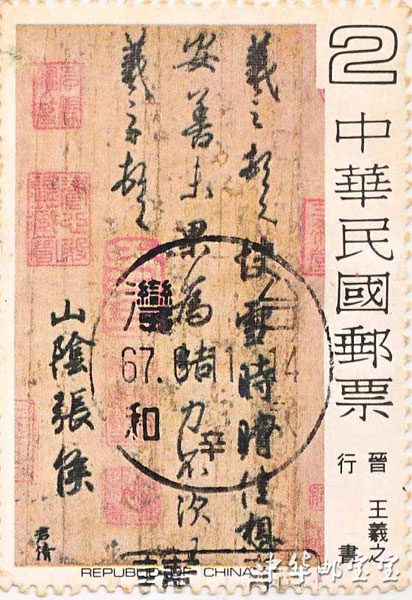 2
中華民國郵票
晉 王羲之
行書
羲之頓首快雪時晴佳想
安善未果為結力不次王
羲之頓首
山陰張侯
君倩
灣
67.
14
和
REPUBLIC OF CHINA